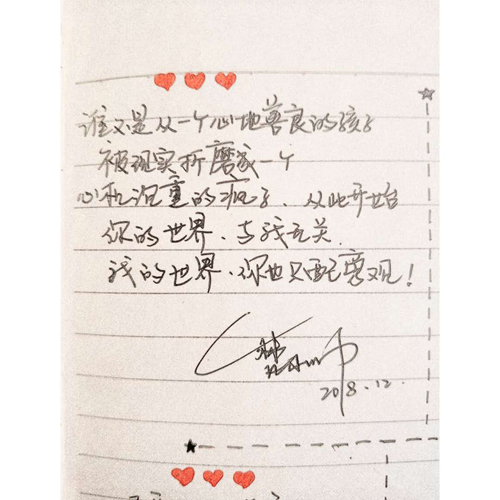 谁不是从一个心地善良的孩子
被现实折磨成一个
心机沉重的疯子、从此开始
你的世界、与我无关
我的世界、你也只配旁观！
2018.12.